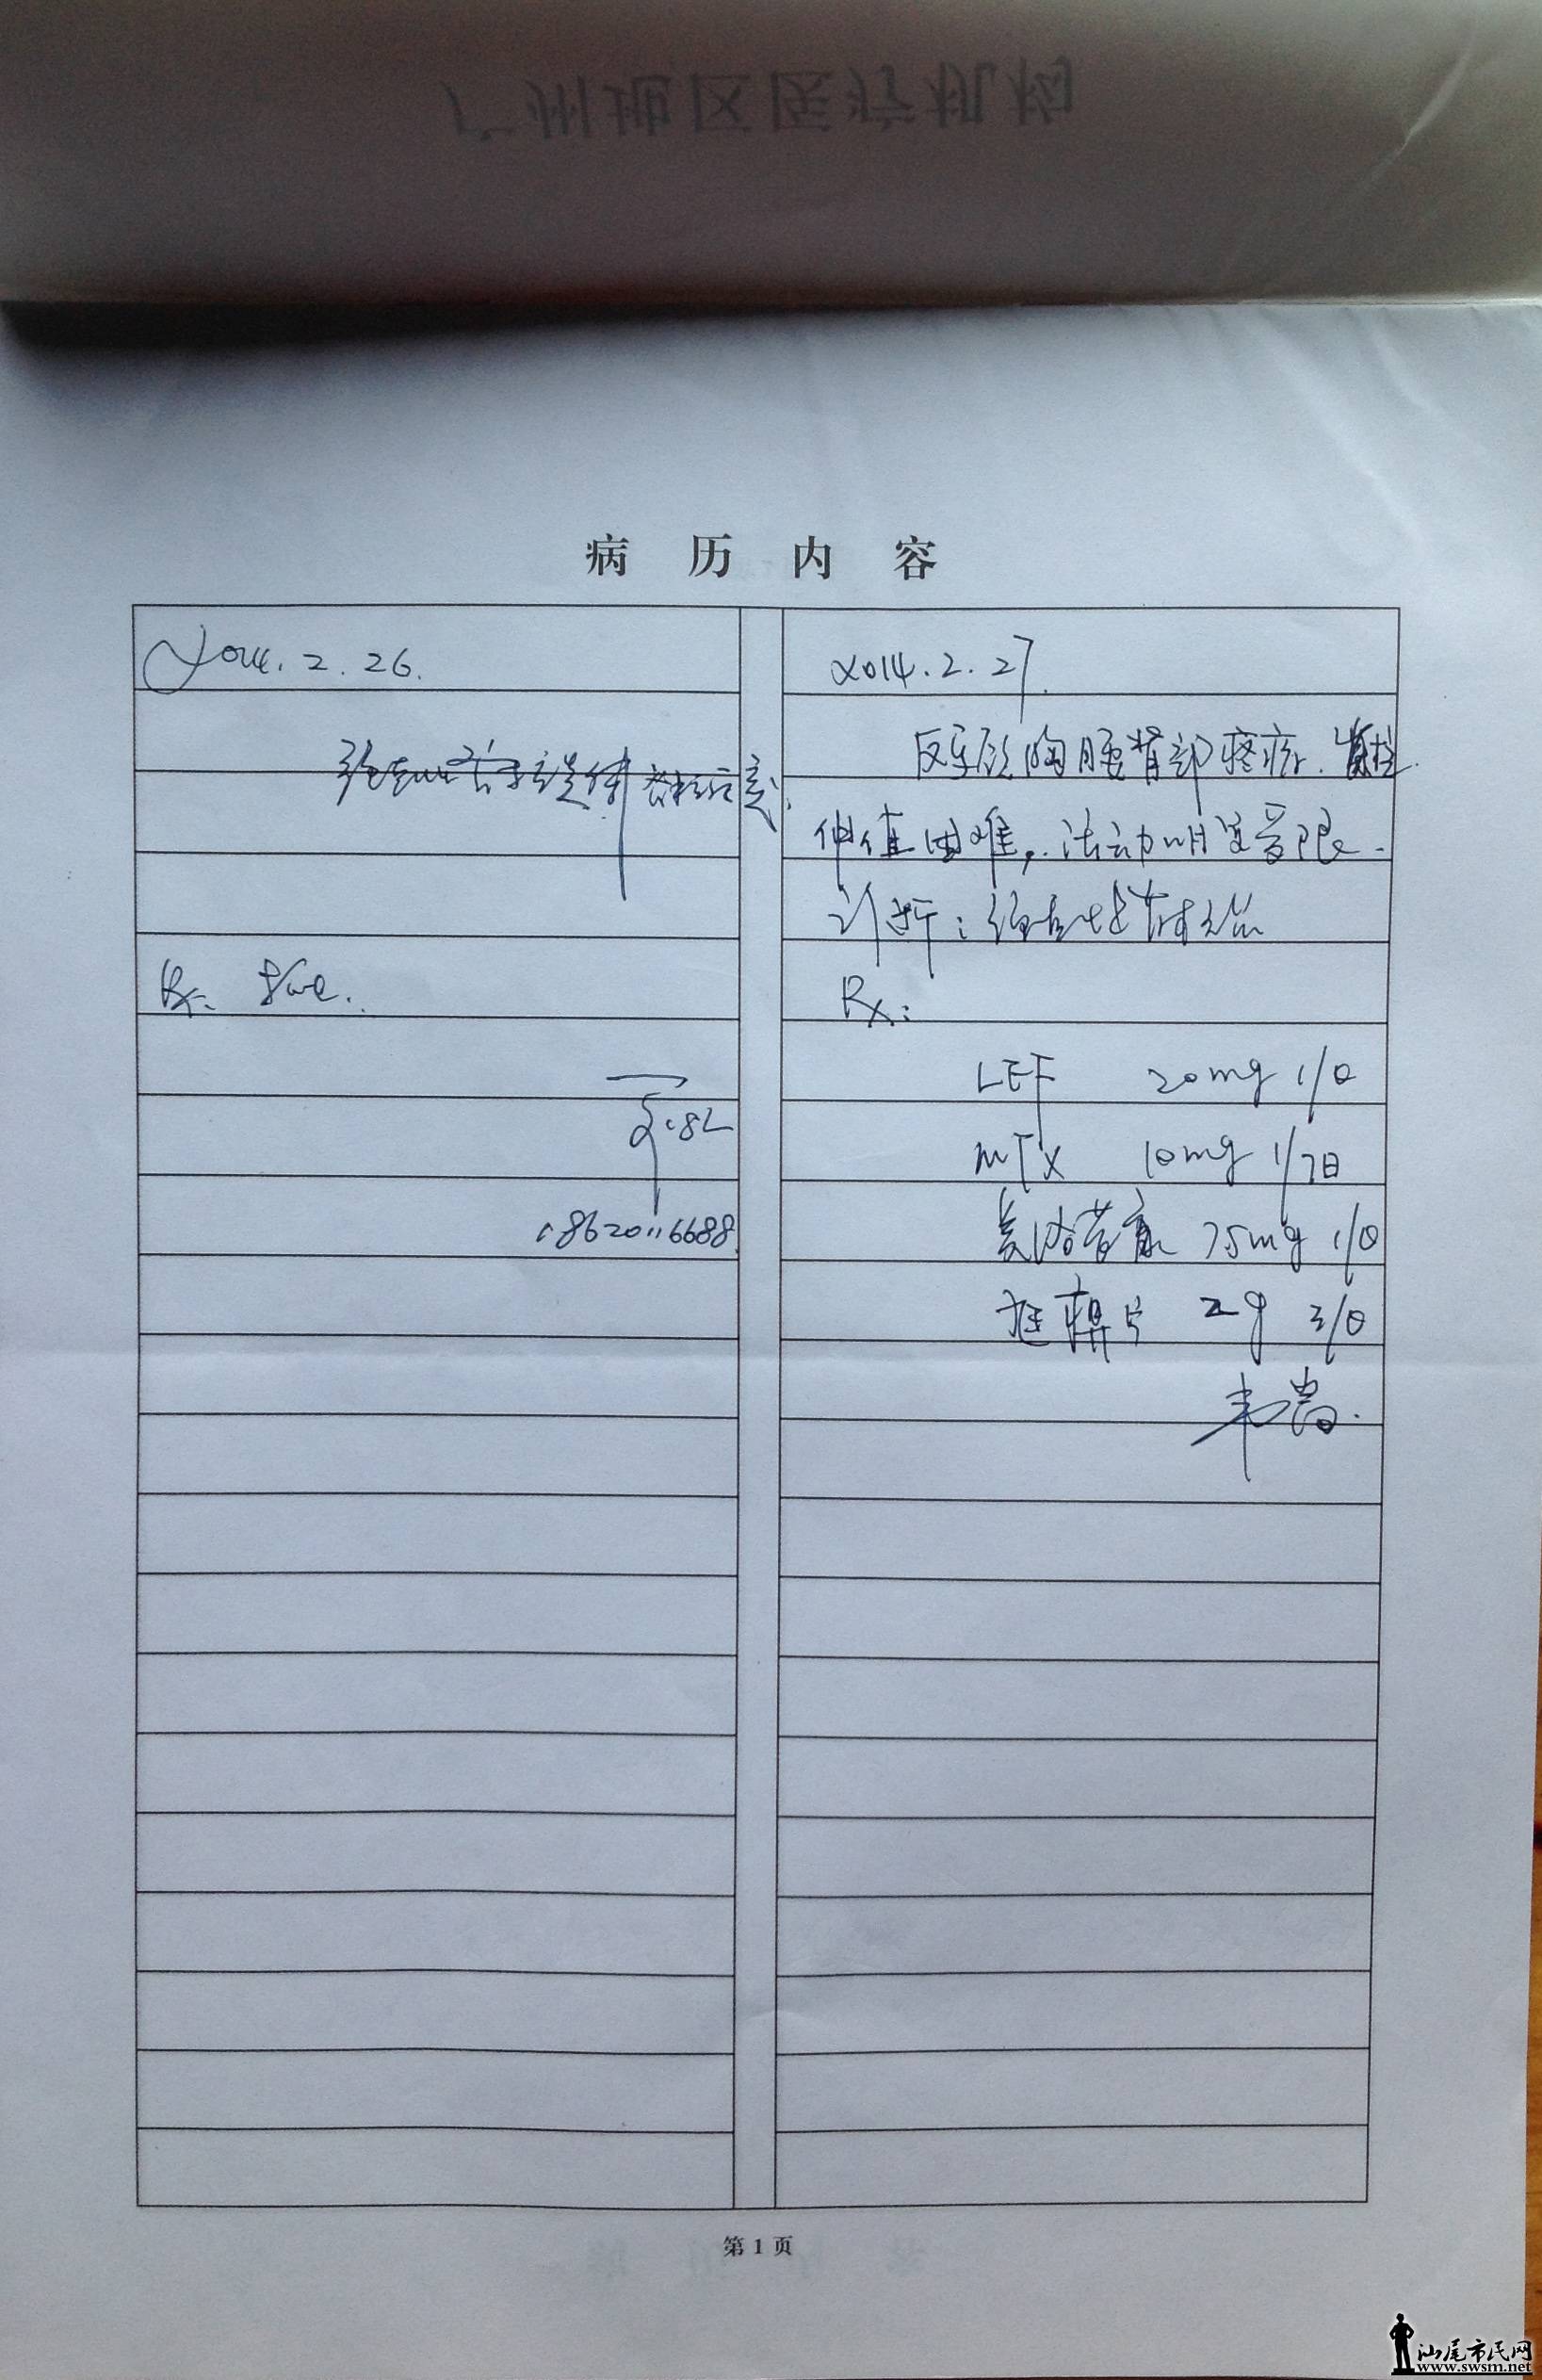 广州地区医疗机构
病历内容
2014.2.26.
Rx.
18620116688
2014.2.27.
反复颈胸腰背部疼痛.脊柱
伸直困难,活动明显受限.
诊断:强直性脊柱炎
Rx:
LEF 20mg 1/日
MTX 10mg 1/7日
美洛昔康 75mg 1/日
片 2g 3/日
第1页
汕尾市民网
www.swsm.net